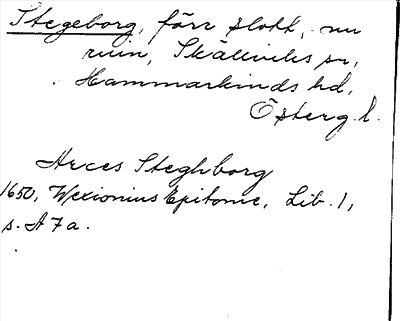 Stegeborg, förr slott, nu
ruin, Skällviks sn,
Hammarkinds hd,
Österg. l.
Arces Steghborg
1650, Wexionius Epitome, Lib. 1,
s. A 7 a.